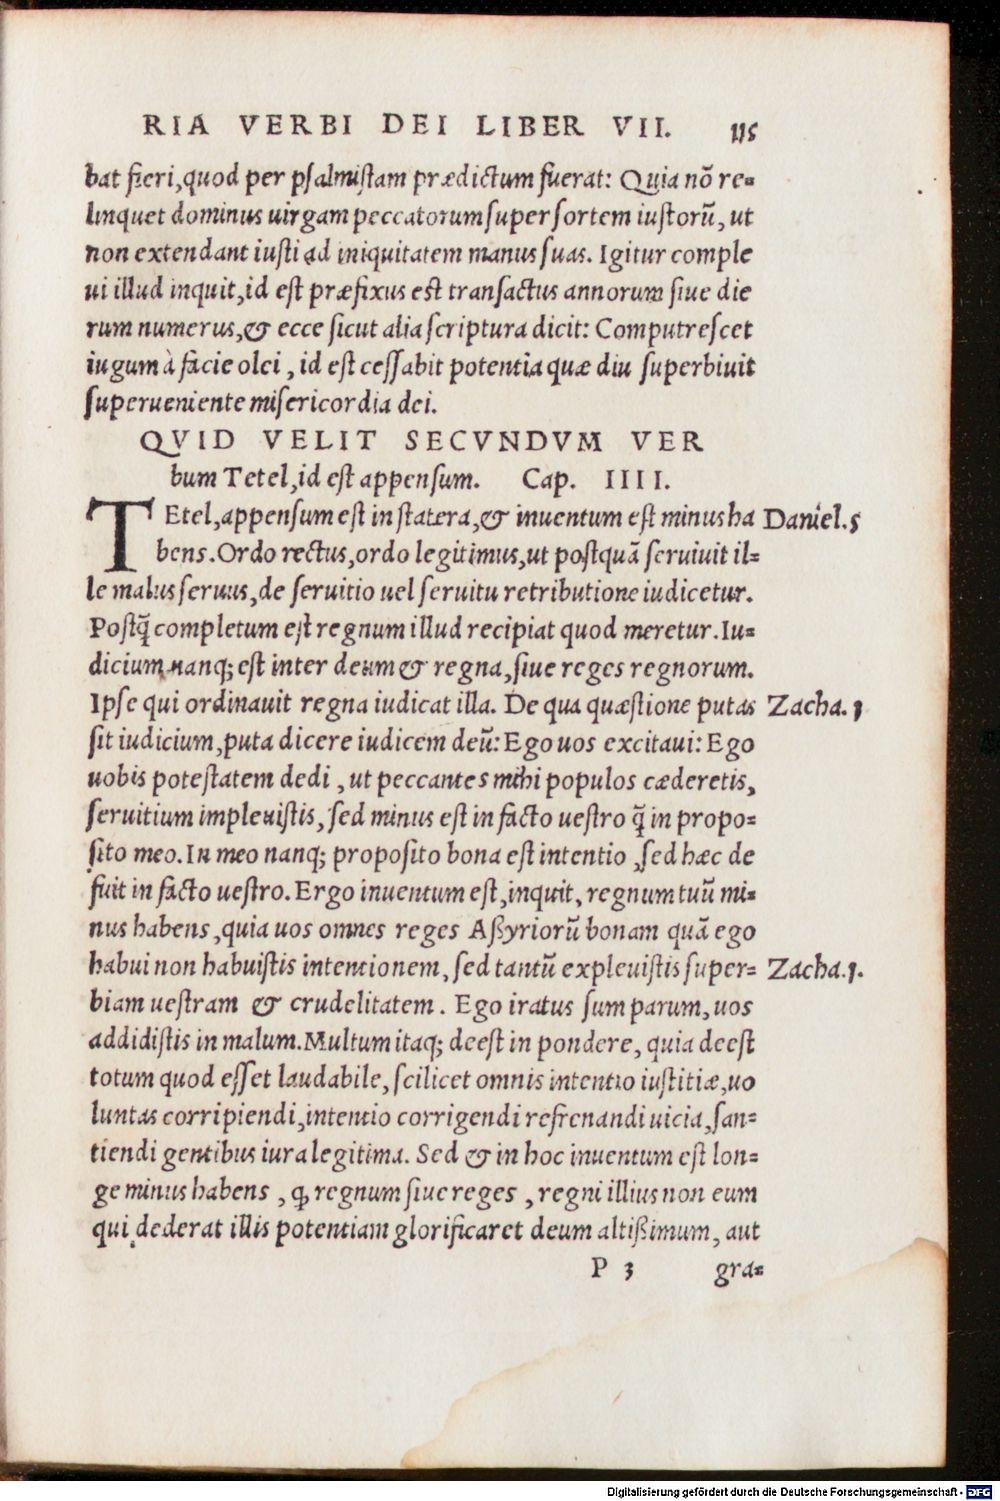 RIA VERBI DEI LIBER VII. 115
bat fieri, quod per psalmistam prædictum fuerat: Quia nõ re=
linquet dominus uirgam peccatorum super sortem iustorũ, ut
non extendant iusti ad iniquitatem manus suas. Igitur comple
ui illud inquit, id est præfixus est transactus annorum siue die
rum numerus, & ecce sicut alia scriptura dicit: Computrescet
iugum à facie olei, id est cessabit potentia quæ diu superbiuit
superueniente misericordia dei.
QVID VELIT SECVNDVM VER
bum Tetel, id est appensum. Cap. IIII.
TEtel, appensum est in statera, & inuentum est minus ha Daniel.5
bens. Ordo rectus, ordo legitimus, ut postquã seruiuit il=
le malus seruus, de seruitio uel seruitu retributione iudicetur.
Postq̃ completum est regnum illud recipiat quod meretur. Iu=
dicium nanq; est inter deum & regna, siue reges regnorum.
Ipse qui ordinauit regna iudicat illa. De qua quæstione putas Zacha. 1
sit iudicium, puta dicere iudicem deũ: Ego uos excitaui: Ego
uobis potestatem dedi, ut peccantes mihi populos cæderetis,
seruitium impleuistis, sed minus est in facto uestro q̃ in propo=
sito meo. In meo nanq; proposito bona est intentio, sed hæc de
fuit in facto uestro. Ergo inuentum est, inquit, regnum tuũ mi=
nus habens, quia uos omnes reges Aßyriorũ bonam quã ego
habui non habuistis intentionem, sed tantũ expleuistis super= Zacha.1.
biam uestram & crudelitatem. Ego iratus sum parum, uos
addidistis in malum. Multum itaq; deest in pondere, quia deest
totum quod esset laudabile, scilicet omnis intentio iustitiæ, uo
luntas corripiendi, intentio corrigendi refrenandi uicia, san=
tiendi gentibus iura legitima. Sed & in hoc inuentum est lon=
ge minus habens, ꝙ regnum siue reges, regni illius non eum
qui dederat illis potentiam glorificaret deum altißimum, aut
P 3 gra=
Digitalisierung gefördert durch die Deutsche Forschungsgemeinschaft - DFG